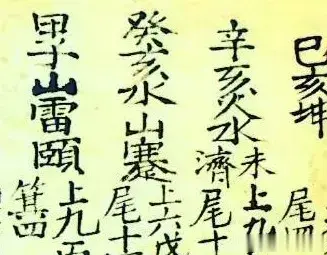 己亥坤
尾四
辛亥火水
未上九
濟尾十
癸亥水山蹇
上六戊
尾十
甲子山雷頤
上九
箕四